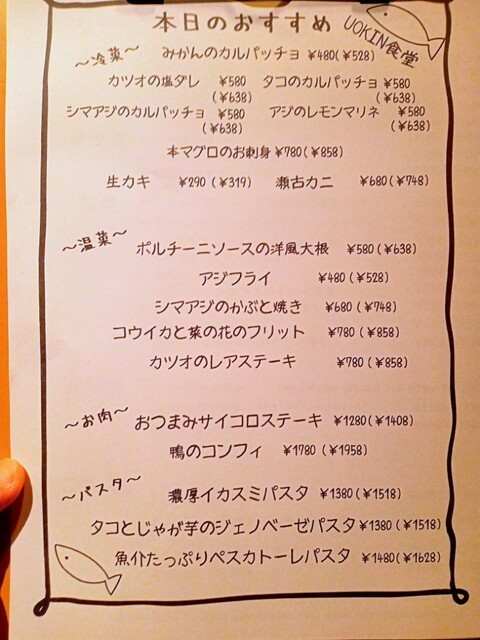 本日のおすすめ
UOKIN食堂
～冷菜～ みかんのカルパッチョ ¥480(¥528)
カツオの塩ダレ ¥580 タコのカルパッチョ ¥580
(¥638) (¥638)
シマアジのカルパッチョ ¥580 アジのレモンマリネ ¥580
(¥638) (¥638)
本マグロのお刺身 ¥780(¥858)
生カキ ¥290(¥319) 瀬古カニ ¥680(¥748)
～温菜～ ポルチーニソースの洋風大根 ¥580(¥638)
アジフライ ¥480(¥528)
シマアジのかぶと焼き ¥680(¥748)
コウイカと菜の花のフリット ¥780(¥858)
カツオのレアステーキ ¥780(¥858)
～お肉～ おつまみサイコロステーキ ¥1280(¥1408)
鴨のコンフィ ¥1780(¥1958)
～パスタ～ 濃厚イカスミパスタ ¥1380(¥1518)
タコとじゃが芋のジェノベーゼパスタ ¥1380(¥1518)
魚介たっぷりペスカトーレパスタ ¥1480(¥1628)